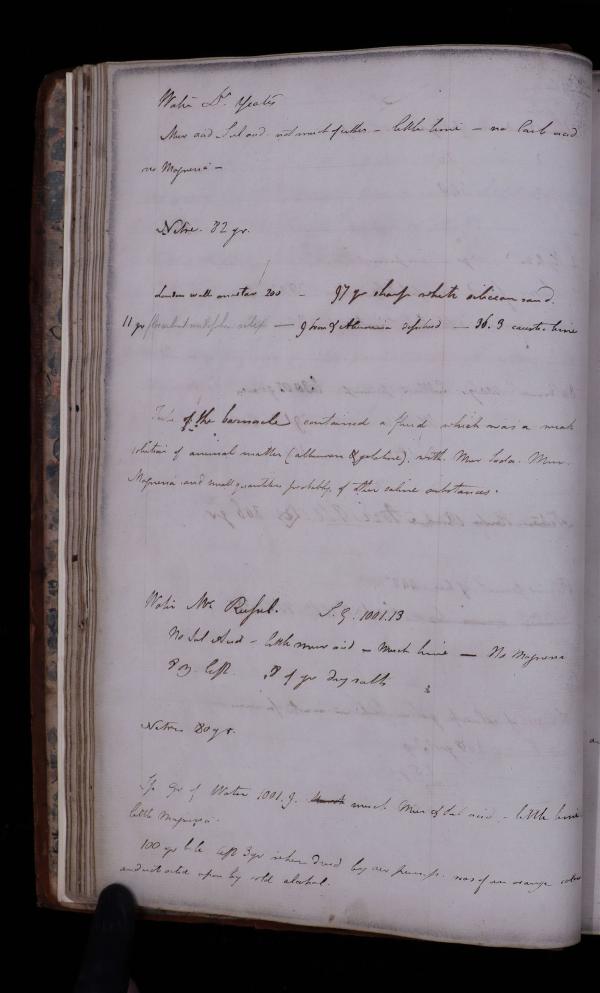 Water Dr. Yeats
Mur acid Sul acid not much of either - little lime - no Carb acid
no Magnesia -
Nitre. 82 gr.
London wall mortar 200 - 97 gr sharp white silicean sand.
11 gr silex - 9 Iron & Alumina - 36.3 caustic lime
Tube of the barnacle contained a fluid which was a weak
solution of animal matter (albumen & gelatine). with Mur Soda. Mur.
Magnesia and small quantities probably of other saline substances.
Water Mr S.G. 1001.13
No Sul Acid - little mur acid - Much lime - No Magnesia
8 oz. left gr dry salts
Nitre 80 gr.
Sp Gr of Water 1001.9. much Mur & Sul acid. - little lime
little Magnesia.
100 gr bile left 3 gr when dried by air pump. was of an orange colour
and not acted upon by cold alcohol.